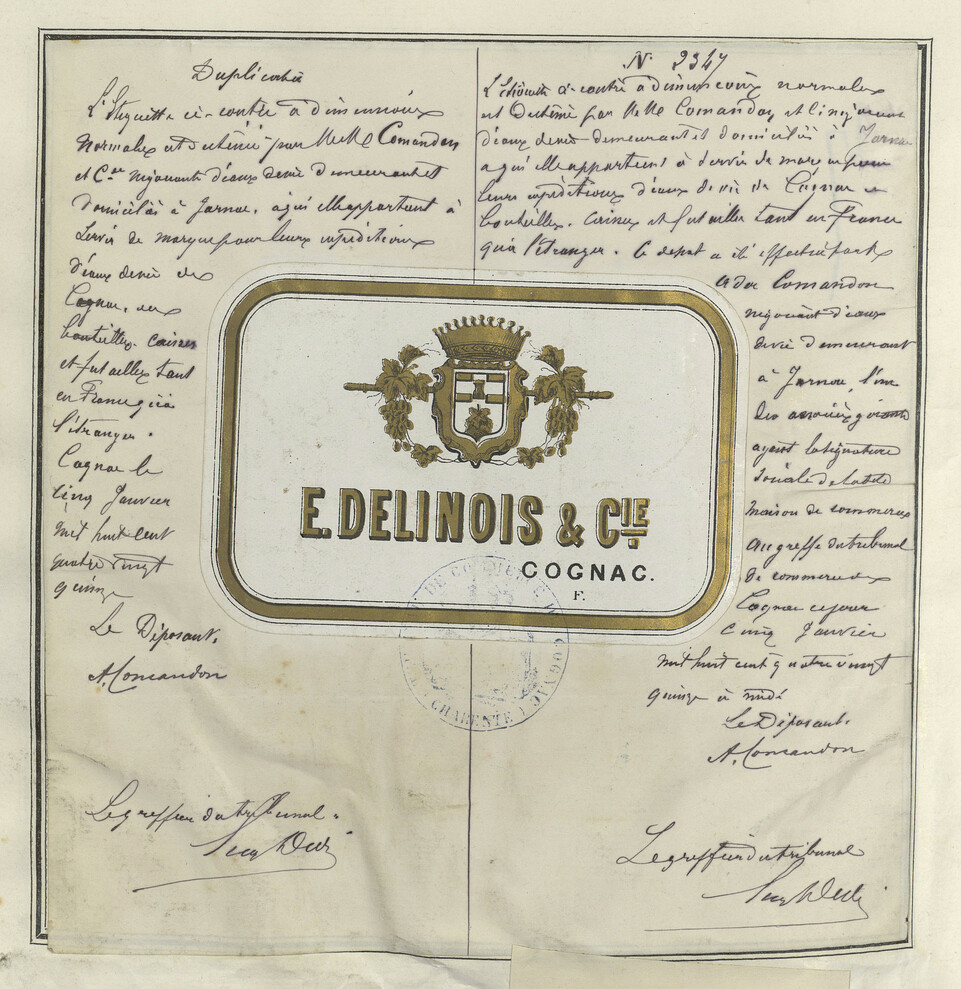 Duplicata
L'Etiquette ci-contre à dimensions
normales est destinée par MM Comandon
et Cie négociants d'eaux devie demeurant et
domiciliés à Jarnac, à qui elle appartient à
servir de marque pour leurs expéditions
d'eaux devie de
Cognac, en
bouteilles, caisses
et futailles tant
en France qu'à
l'étranger.
Cognac le
cinq Janvier
mil huit cent
quatre vingt
quinze
Le Déposant.
A. Comandon
Le greffier du tribunal.
N° 2347
L'étiquette ci-contre à dimensions normales
est destinée par MM Comandon et Cie négociants
d'eaux devie demeurant et domiciliés à Jarnac
à qui elle appartient à servir de marque pour
leurs expéditions d'eaux de vie de Cognac en
bouteilles, caisses et futailles tant en France
qu'à l'étranger. Ce depot a été effectué par
Comandon
négociant d'eaux
devie demeurant
à Jarnac, l'un
des associés
ayant la signature
sociale de la dite
maison de commerce
au greffe du tribunal
de commerce de
Cognac ce jour
cinq Janvier
mil huit cent quatre vingt
quinze à midi
Le Déposant.
A. Comandon
Le greffier du tribunal
E. DELINOIS & CIE
COGNAC.
F.
DE COMMERCE
COGNAC
CHARENTE